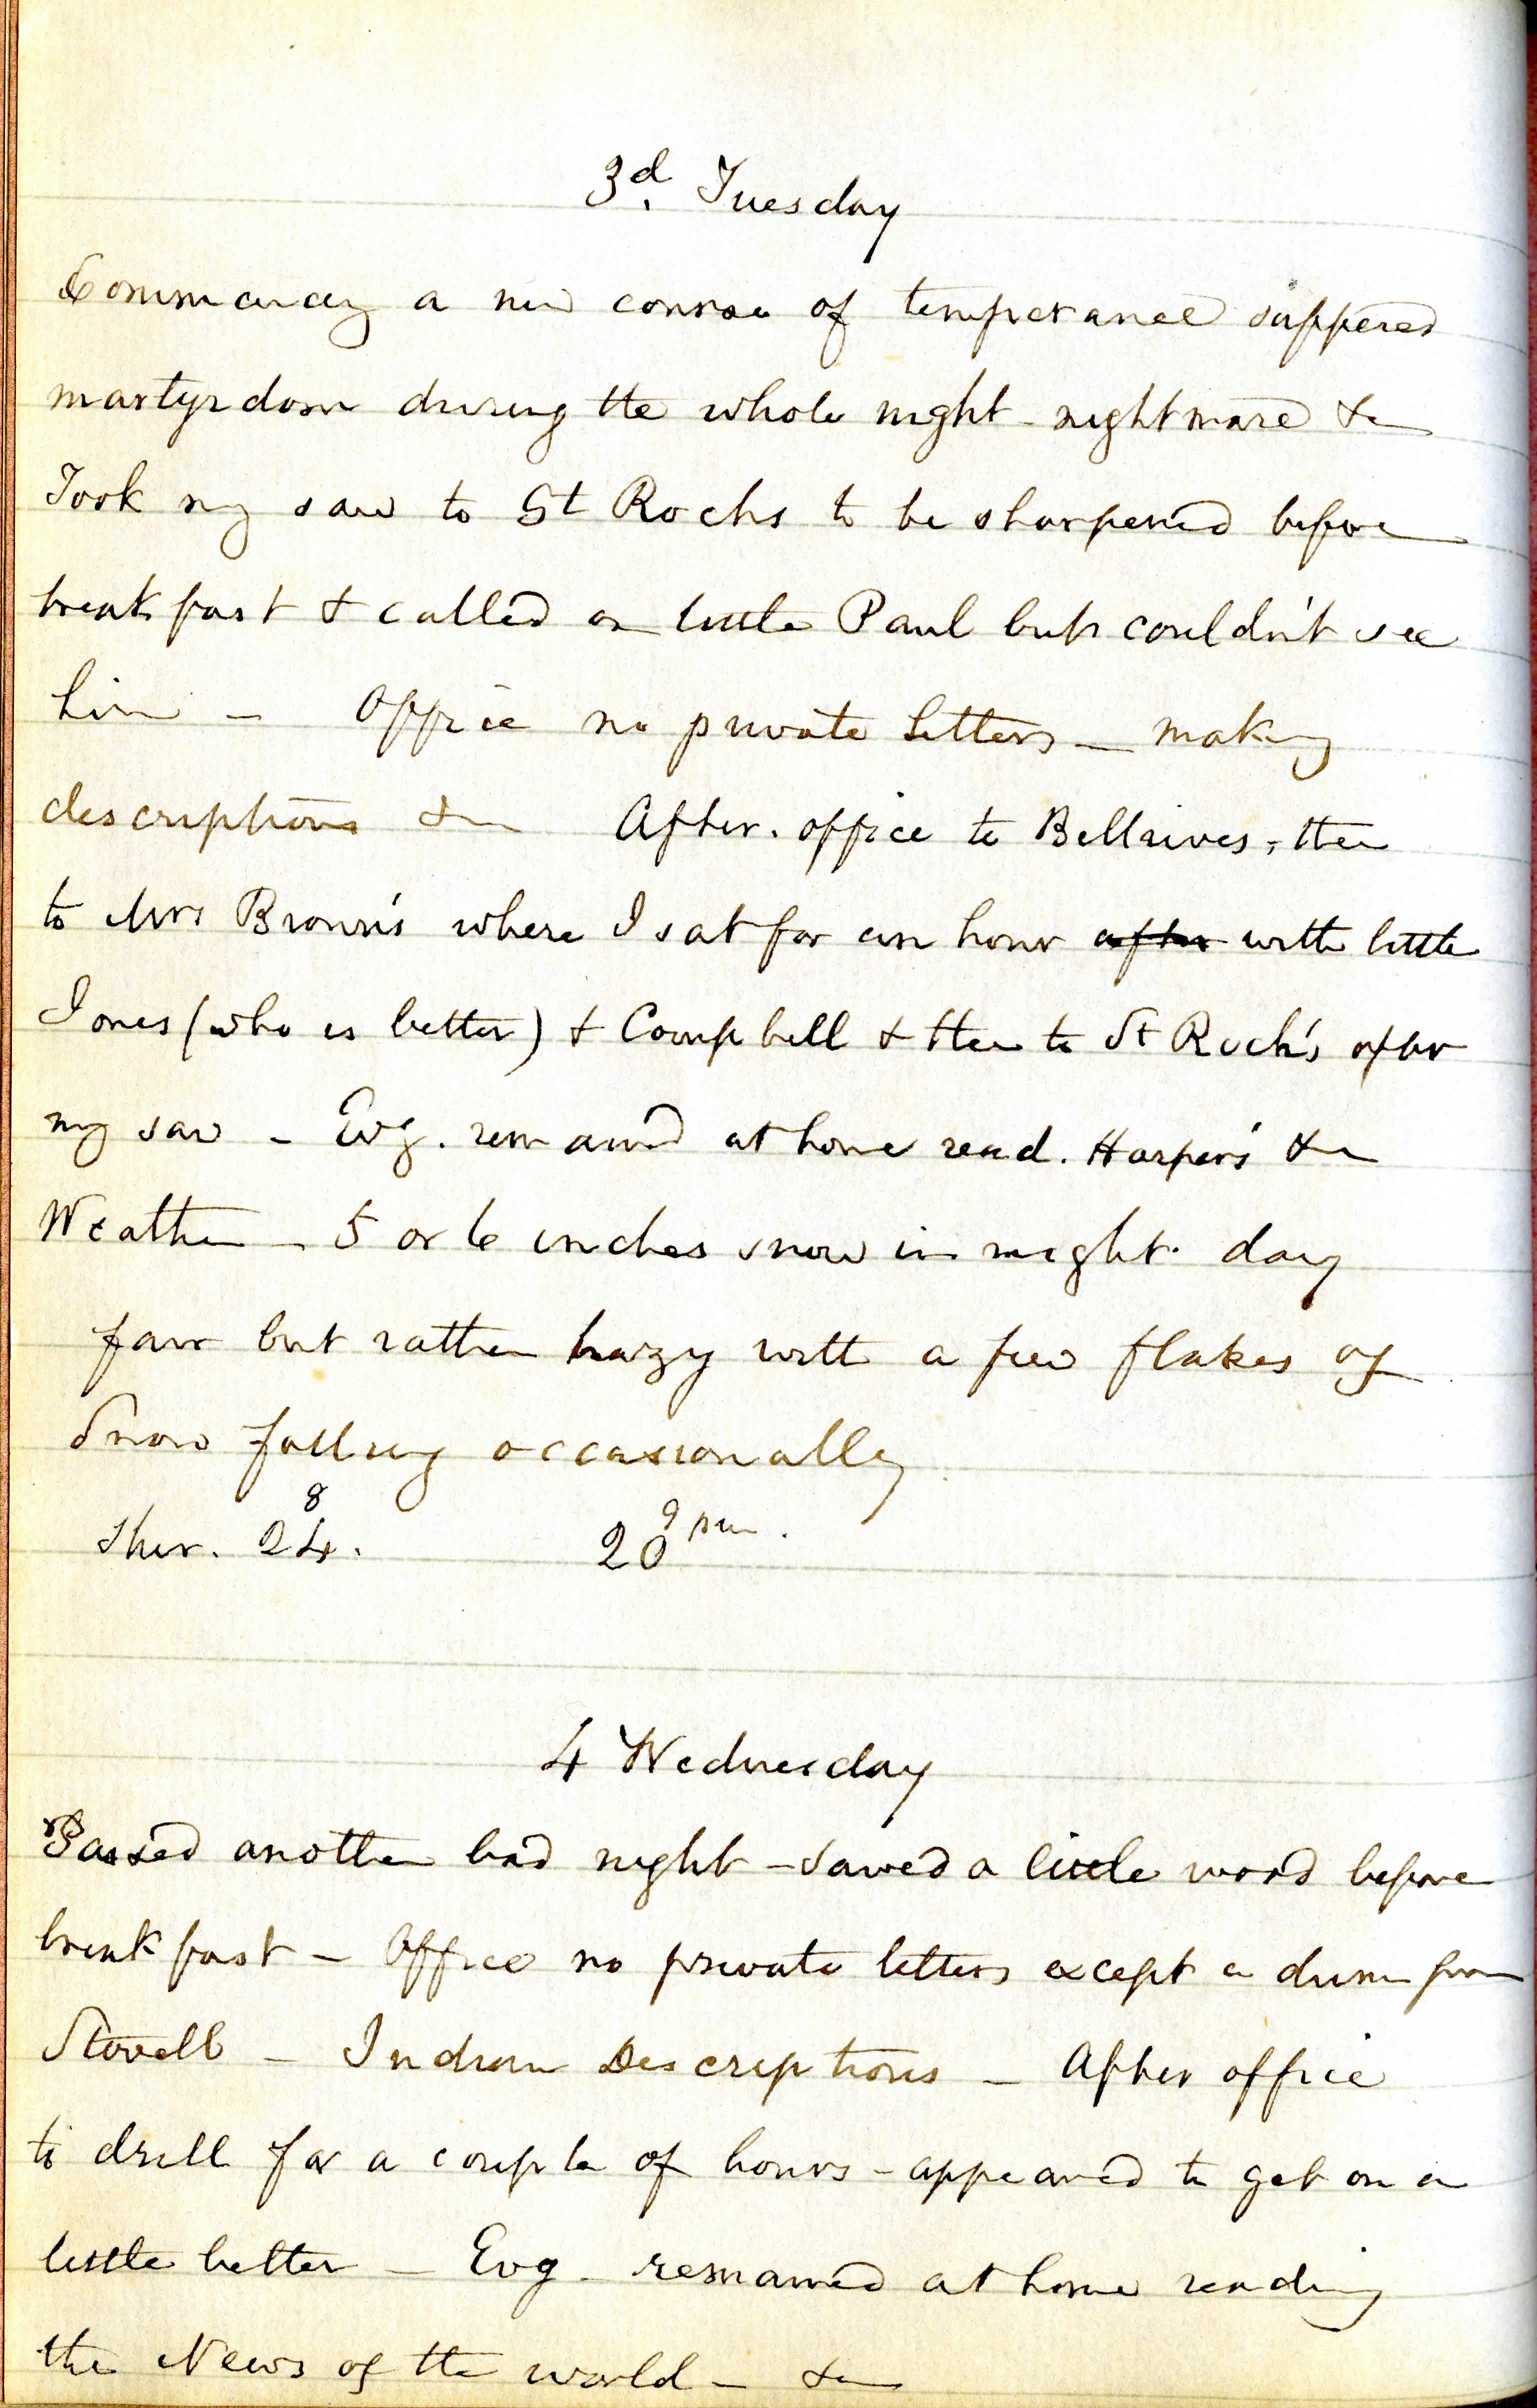 3d. Tuesday
Commencing a new course of temperance suffered
martyrdom during the whole night - nightmare &c
Took my saw to St Rochs to be sharpened before
breakfast & called on little Paul but couldn't see
him - Office no private letters - making
descriptions &c After office to Bellrives, then
to Mrs Brown's where I sat for an hour after with little
Jones (who is better) & Campbell & then to St Roch's after
my saw - Evg. remained at home read. Harper's &c
Weather - 5 or 6 inches snow in night. day
fair but rather hazy with a few flakes of
Snow falling occasionally
8 9 pm.
Ther. 24. 20
4 Wednesday
Passed another bad night - sawed a little wood before
breakfast - Office no private letters except a dun from
Stovell - Indian Descriptions - After office
to drill for a couple of hours - appeared to get on a
little better - Evg - remained at home reading
the News of the world - &c